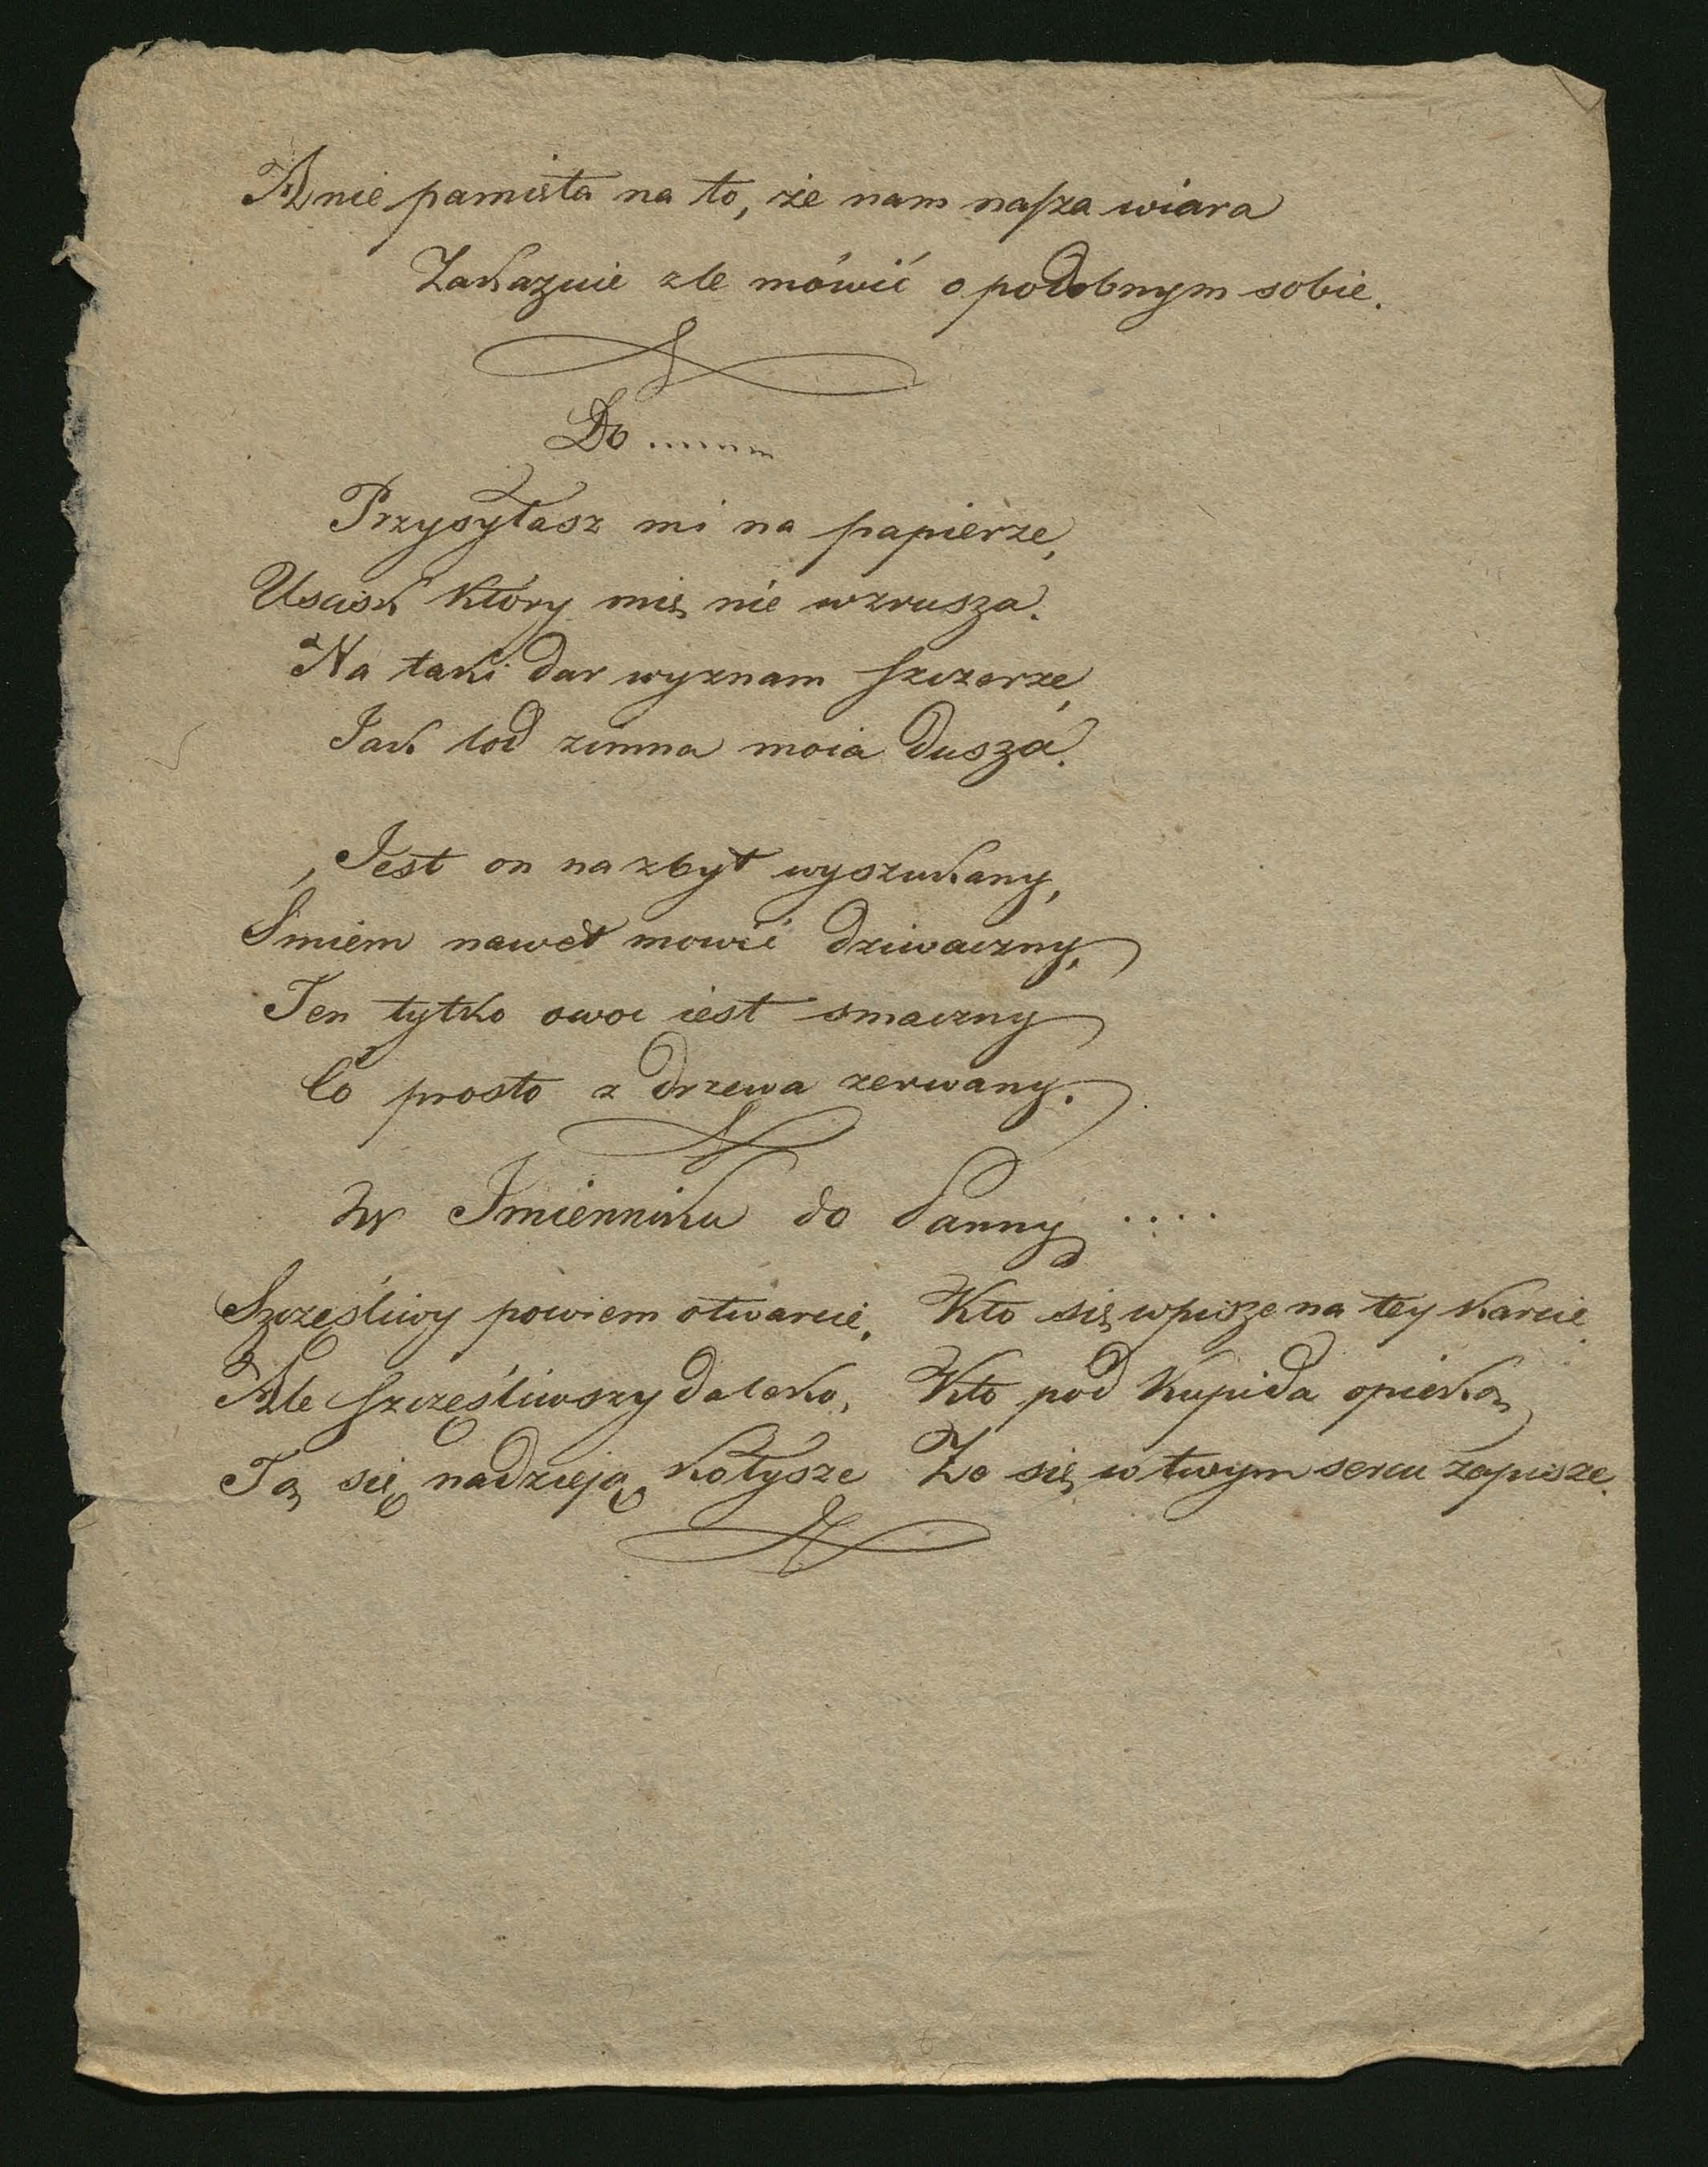 A nie pamięta na to, że nam nasza wiara
Zakazuie zle mówić o podobnym sobie.
Do .......
Przysyłasz mi na papierze,
Uscisk który mię nie wzrusza.
Na taki dar wyznam szczerze,
Iak lod zimna moia dusza.
Jest on nazbyt wyszukany,
Smiem nawet mowić dziwaczny,
Ten tylko owoc iest smaczny
Co prosto z drzewa zerwany.
W Imienniku do Panny ....
Szczęśliwy powiem otwarcie, Kto się wpisze na tey karcie.
Ale szczęśliwszy daleko, Kto pod Kupida opieką
Tą się nadzieją kołysze Ze się w twym sercu zapisze.